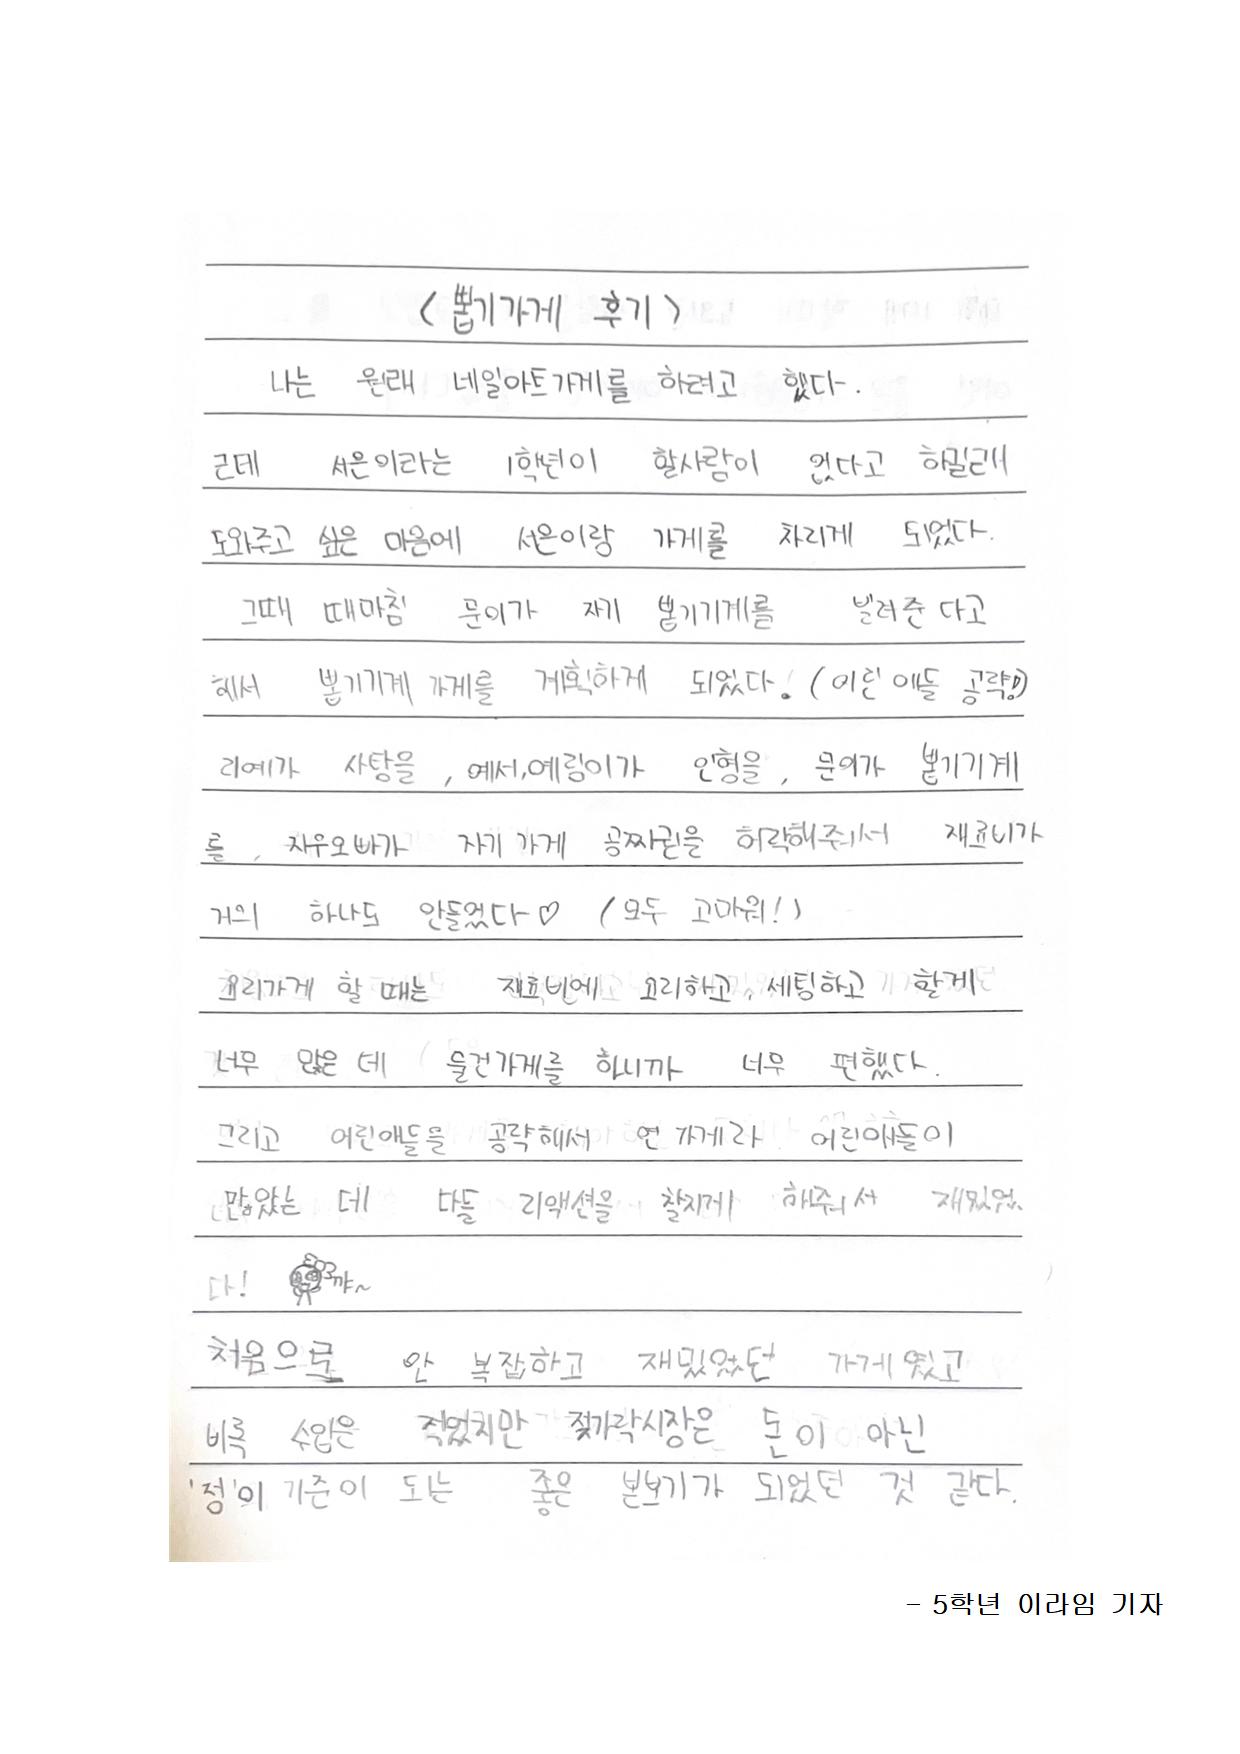 <뽑기가게 후기>
나는 원래 네일아트가게를 하려고 했다.
근데 서은이라는 1학년이 할사람이 없다고 하길래
도와주고 싶은 마음에 서은이랑 가게를 차리게 되었다.
그때 때마침 문의가 자기 뽑기기계를 빌려준다고
해서 뽑기기계 가게를 계획하게 되었다! (어린 애들 공략!)
리예가 사탕을, 예서,예림이가 인형을, 문의가 뽑기기계
를, 지우오빠가 자기가게 공짜권을 허락해줘서 재료비가
거의 하나도 안들었다♡ (모두 고마워!)
요리가게 할 때는 재료비에 요리하고, 세팅하고 할게
너무 많은데 물건가게를 하니까 너무 편했다.
그리고 어린애들을 공략해서 연 가게라 어린애들이
많았는데 다들 리액션을 찰지게 해줘서 재밌었
다! 꺄~
처음으로 안 복잡하고 재밌었던 가게였고
비록 수입은 적었지만 젖가락시장은 돈이 아닌
'정'의 기준이 되는 좋은 본보기가 되었던 것 같다.
- 5학년 이라임 기자